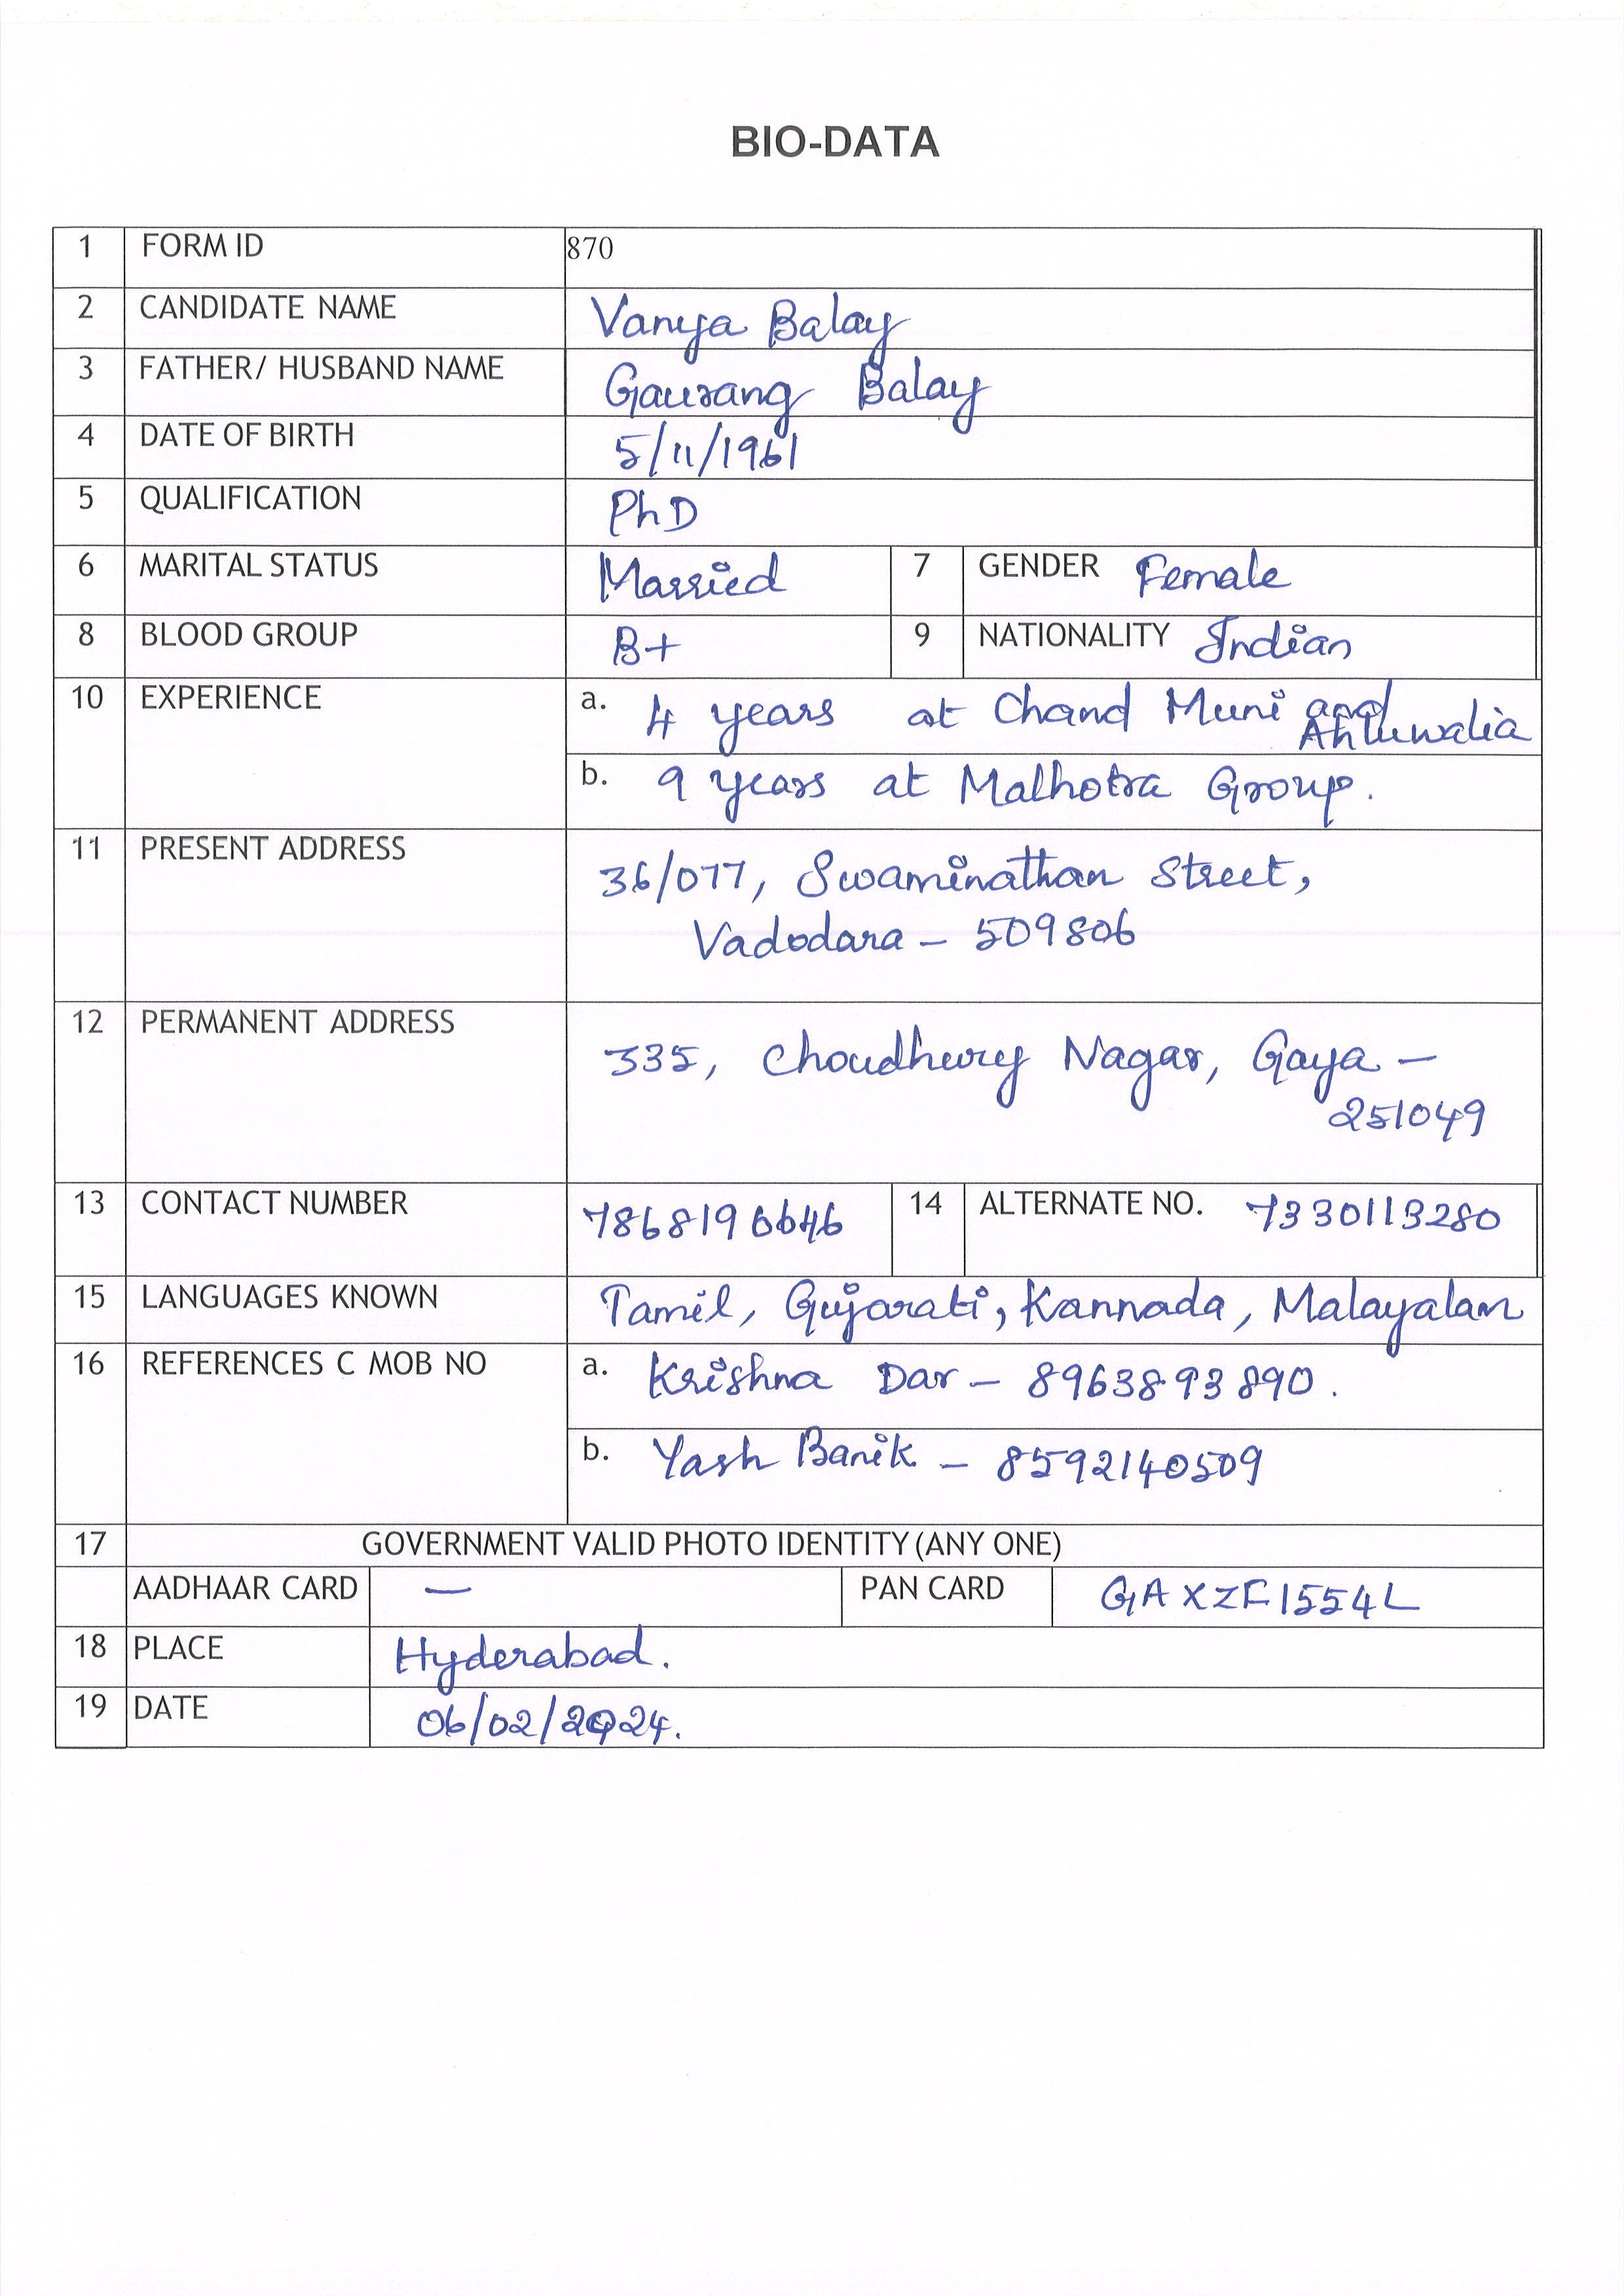 BIO-DATA
1 FORM ID 870
2 CANDIDATE NAME Vanya Balay
3 FATHER/ HUSBAND NAME Gaurang Balay
4 DATE OF BIRTH 5/11/1961
5 QUALIFICATION PhD
6 MARITAL STATUS Married 7 GENDER Female
8 BLOOD GROUP B+ 9 NATIONALITY Indian
10 EXPERIENCE a. 4 years at Chand Muni and
Ahluwalia
b. 9 years at Malhotra Group.
11 PRESENT ADDRESS 36/077, Swaminathan Street,
Vadodara - 509806
12 PERMANENT ADDRESS 335, Choudhury Nagar, Gaya -
251049
13 CONTACT NUMBER 7868196646 14 ALTERNATE NO. 7330113280
15 LANGUAGES KNOWN Tamil, Gujarati, Kannada, Malayalam
16 REFERENCES C MOB NO a. Krishna Dar - 8963893890.
b. Yash Banik - 8592140509
17 GOVERNMENT VALID PHOTO IDENTITY (ANY ONE)
AADHAAR CARD — PAN CARD GAXZF1554L
18 PLACE Hyderabad.
19 DATE 06/02/2024.